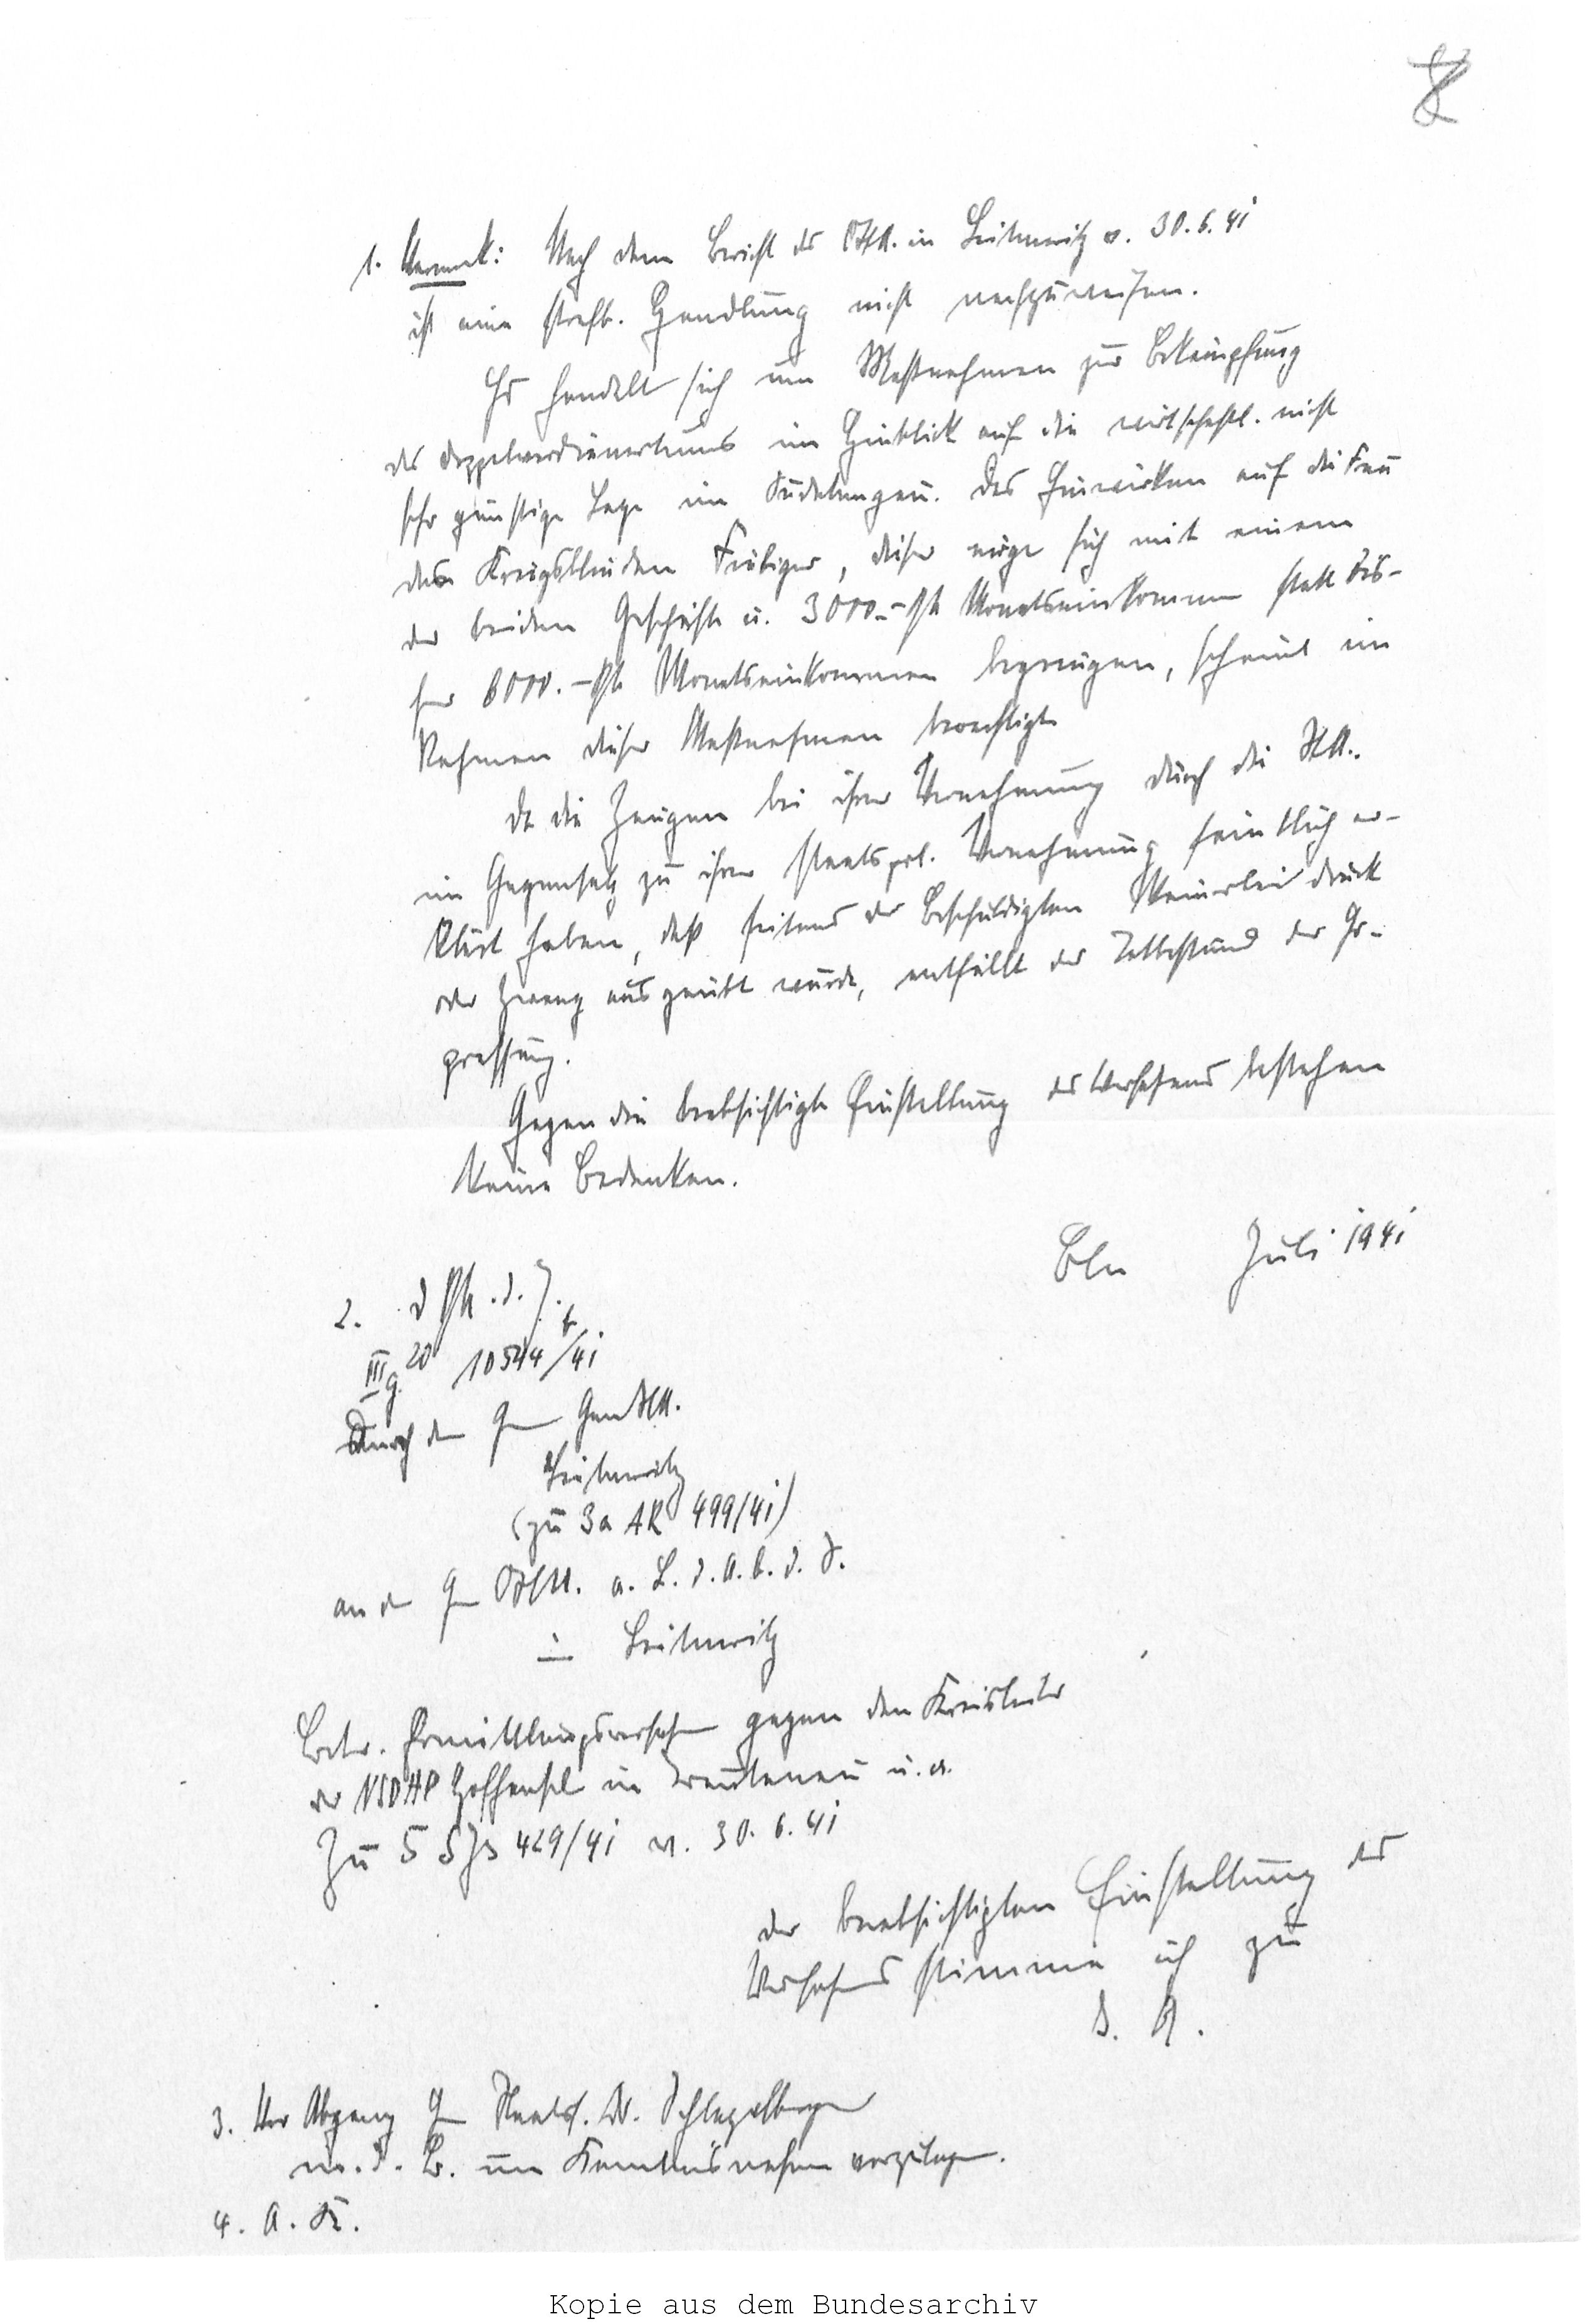 8
1. Vermerk: Nach dem Bericht des OStA. in Leitmeritz v. 30.6.41
ist eine strafb. Handlung nicht nachzuweisen.
Es handelt sich um Maßnahmen zur Bekämpfung
des Doppelverdienertums im Hinblick auf die wirtschaftl. nicht
sehr günstige Lage im Sudetengau. Das Einwirken auf die Frau
des Kriegsblinden Fiebiger, diese möge sich mit einem
der beiden Geschäfte u. 3000.- RM Monatseinkommen statt bis-
her 6000.- RM Monatseinkommen begnügen, scheint im
Rahmen dieser Maßnahmen berechtigt.
Da die Zeugen bei ihrer Vernehmung durch die StA.
im Gegensatz zu ihrer staatspol. Vernehmung sämtlich er-
klärt haben, daß seitens der Beschuldigten keinerlei Druck
oder Zwang ausgeübt wurde, entfällt der Tatbestand der Er-
pressung.
Gegen die beabsichtigte Einstellung des Verfahrens bestehen
keine Bedenken.
Bln Juli 1941
2. D RM. d. J.
III g 20 10544/41
Durch den Herrn GenStA.
Leitmeritz
(zu 3a AR 499/41)
an den Herrn OStA. a. L. d. A. b. d. S.
in Leitmeritz
Betr. Ermittlungsverfahren gegen den Kreisleiter
der NSDAP in Trautenau u. a.
Zu 5 SJs 429/41 v. 30.6.41
Der beabsichtigten Einstellung des
Verfahrens stimme ich zu
I. A.
3. Vor Abgang Herrn Staats. Dr. Schlegelberger
m. d. B. um Kenntnisnahme vorzulegen.
4. A. K.
Kopie aus dem Bundesarchiv